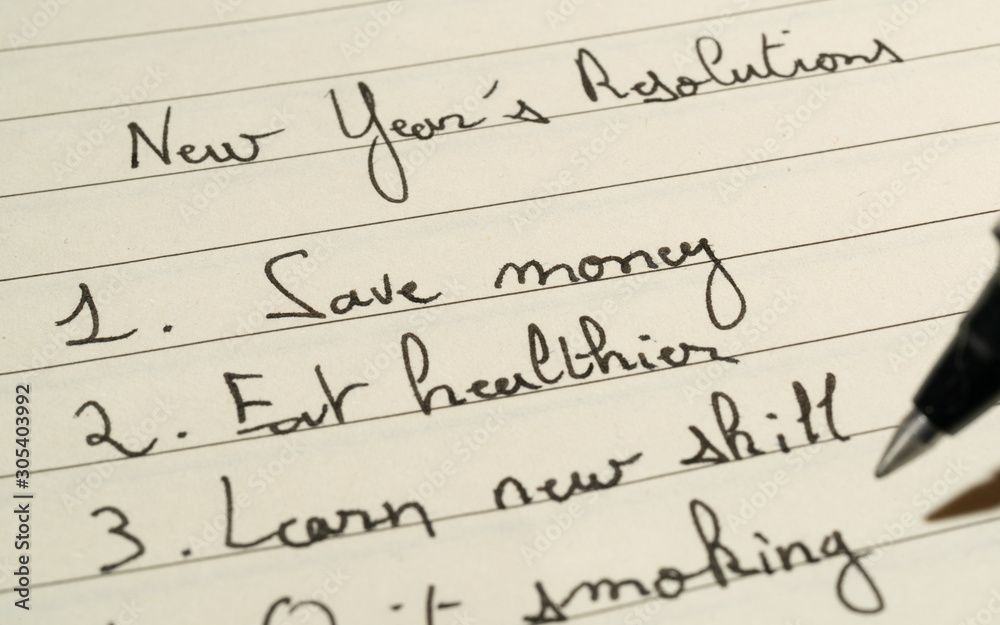 New Year's Resolutions
1. Save money
2. Eat healthier
3. Learn new skill
smoking
Adobe Stock | #305403992